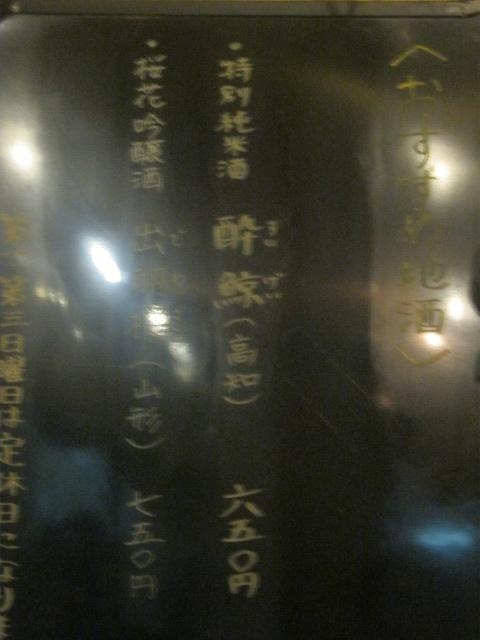 〈おすすめ地酒〉
・特別純米酒 酔鯨(高知) 六五〇円
すいげい
・桜花吟醸酒 出羽桜(山形) 七五〇円
第一、第三日曜日は定休日になりま